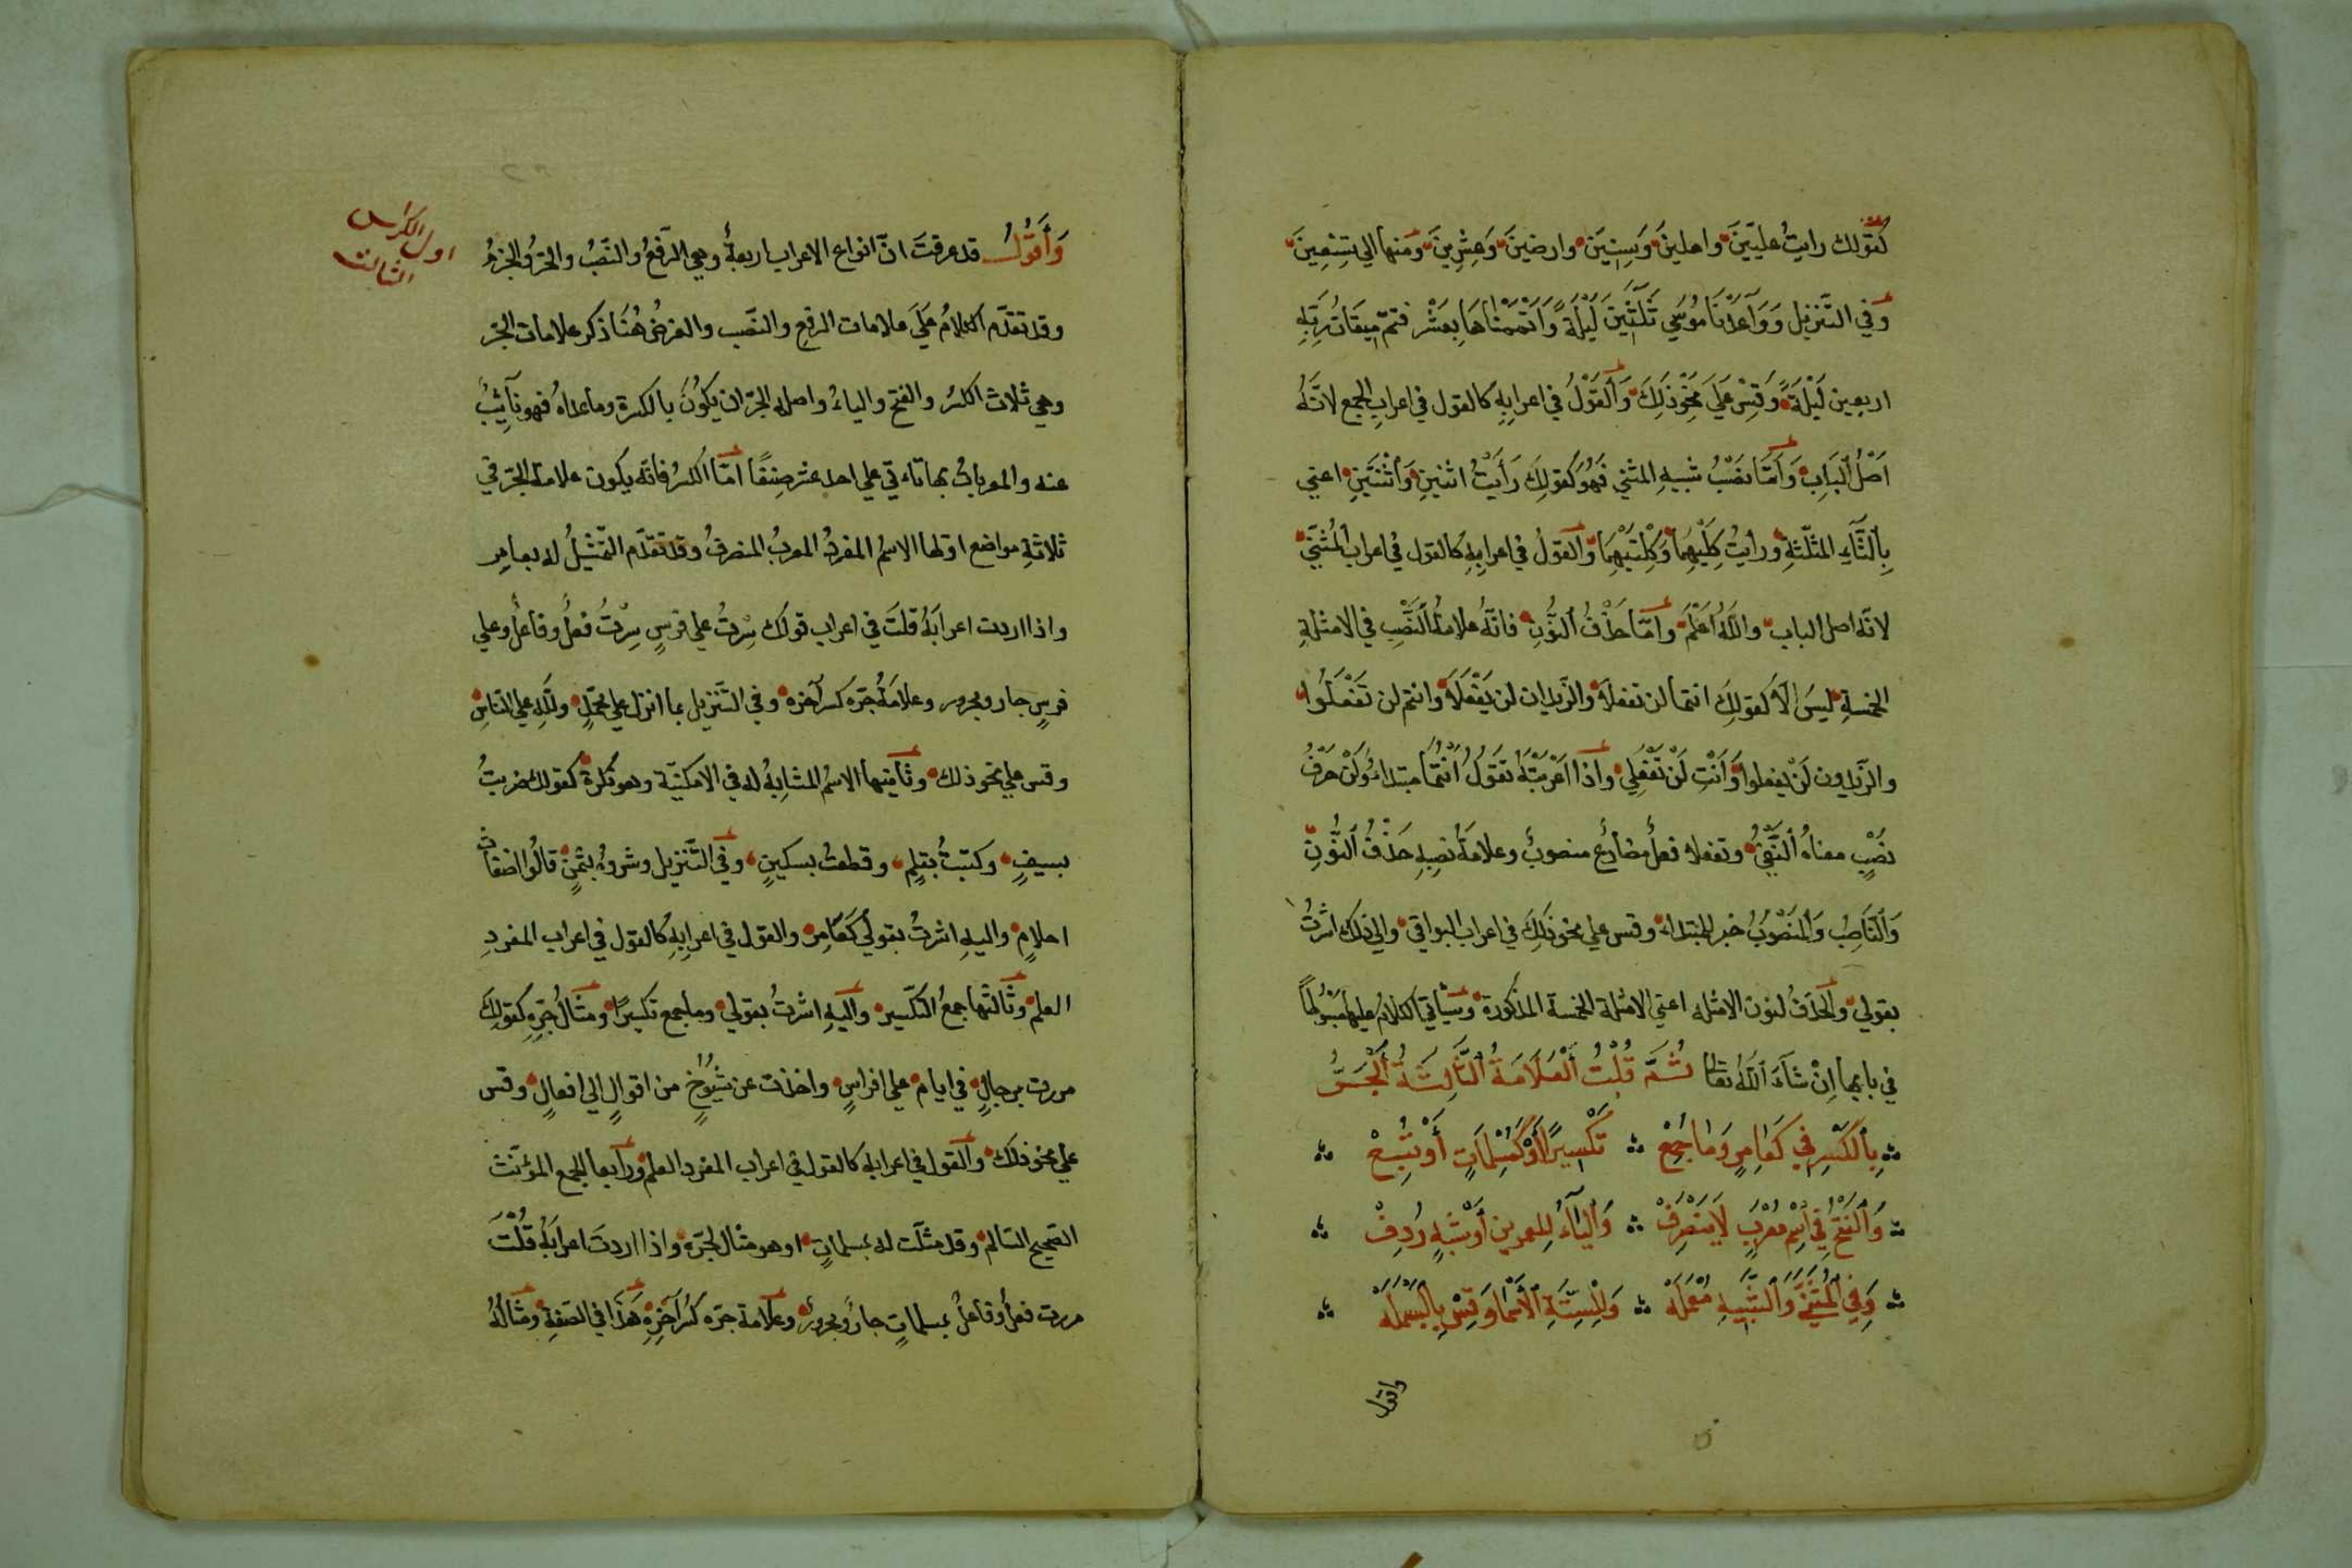 كقولك رايتُ عليّينَ واهلينَ وَسِنِيَن وارضينَ وَعِشْرِينَ وَمنها الي تِسْعِينَ
وَفي التَّنزيل وَوَاعَدْنَا مُوسَي ثَلَٰثِينَ لَيْلَةً وَاَتْمَمْنَاهَا بِعَشْر فتمّ مِيقَاتُ رَبِّهِ
اربعين لَيْلَةً وَقِسْ عَلَي نَحْوِ ذَلِكَ وَالْقَوْلُ في اعرابِهِ كالقول في اعرابِ الجمع لانَّهُ
اَصْلُ الْبَابِ وَاَمَّا نصْبُ شبيهِ المثني فَهُوَ كَقولِكَ رَأَيْتُ اثنينِ وَاثْنَتَينِ اعني
بِالثَّآءِ المثلّثةِ ورأيتُ كِلَيْهِمَا وَكِلْتَيْهِمَا وَالقولُ في اعرابِهِ كالقول في اعراب الْمُثَنَّي
لانّه اصل الباب واللّهُ اَعْلَمُ وامّا حذْفُ النُّونِ فانّهُ علامةُ النَّصْبِ في الامثلةِ
الخمسةِ ليسَ الّا كقولِكَ انتما لن تفعلَا والزّيدان لن يَفْعَلَا وانتم لن تَفْعَلُوا
والزّيدون لَنْ يفعلوا وَاَنْتِ لَنْ تَفْعَلِي واذا اَعْرَبْتَهُ تقولُ اَنْتُمَا مبتدا وَلَنْ حَرْفُ
نصْبٍ معناهُ النَّفْيُ وتفعلا فعلٌ مضارعٌ منصوبٌ وعلامةُ نصبِهِ حَذْفُ النُّونِ
وَالنَّاصِبُ وَالْمَنْصُوبُ خبر المبتداء وقس علي نحو ذَلِكَ في اعراب البواقي والي ذلك اشرْتُ
بقولي والحذفُ لنون الامثله اعني الامثلة الخمسة المذكورة وسَيَأتي الكلامُ عليها مَبْسُوطًا
في بابها اِنْ شَآءَ اللّهُ تعَالَي ثُمَّ قُلْتُ اَلْعَلَامَةُ الثَّالِثَةُ اَلْجَرُّ
بِالكَسْرِ في كَعَامِرٍ وَمَا جُمِعْ تَكْسِيرًا أَوْ كَمُسْلِمَاتٍ أَوْ تُبِعْ
وَالْفَتْحُ فِي اسْمٍ مُعْرَبٍ لَا يَنْصَرِفْ وَاليَاءُ لِلعمرين أَوْ شِبْهٍ رُدِفْ
وَفِي الْمُثَنَّي وَالشَّبِيهِ مُعْمَلَهْ وَلِلسِّتَّةِ الْأَسْمَا وَقِسْ بِالْبَسْمَلَهْ
واقول
اول الكراس
الثالث
وَأَقُولُ قد عرفتَ انّ انواع الاعراب اربعةٌ وهي الرّفعُ والنّصْبُ والجرُّ والجزمُ
وقد تقدّم الكلامُ عَلَي علامات الرفعِ والنصَب والغرضُ هُنَا ذكر علامات الجرّ
وهي ثلاث الكسْرُ والفتح والياءُ واصل الجرّ ان يكُونَ بالكسرة وما عداهُ فهو نآئِبٌ
عنه والمعرباتُ بها تاءتي علي احد عشر صِنفًا امّا الكسْرُ فانّه يكون علامة الجرّ في
ثلاثةِ مواضع اوّلها الاسمُ المفردُ المعربُ المنصرفُ وقد تقدّم التّمْثيلُ له بعامِرٍ
واذا اردت اعرابَهُ قلتَ في اعراب قولك سِرتُ علي فرسٍ سِرْتُ فعلٌ وفاعلٌ وعلي
فرسٍ جار ومجرور وعلامَةُ جرّه كسر آخره وفي التّنزيل بما انزل علي محمّدٍ وللّهِ علي النّاسِ
وقس علي نحو ذلك وثانيها الاسمُ المشابهُ له في الامكنيّة وهو نكرة كقولك ضربتُ
بسيفٍ وكتبتُ بقلمٍ وقطعتُ بسكينٍ وفي التّنزيل وشروهُ بثمنٍ قالُوا اضغاث
احلامٍ واليهِ اشرتُ بقولي كَعَامِرٍ والقول في اعرابِهِ كالقول في اعراب المفردِ
العلم وثالثها جمعُ التكّسير واليهِ اشرتُ بقولي وما جمع تكسيرًا ومثالُ جرِّهِ كقولِكَ
مررت برجالٍ في ايام علي افراسٍ واخذت عن شُيُوخٍ من اقوالٍ الي افعالٍ وقس
علي نحو ذلكَ والقول في اعرابه كالقول في اعراب المفرد العلم ورابعها الجمع المؤنّث
الصّحيح السّالم وقد مثلّت له بمسلماتٍ وهو مثال لجرّه واذا اردتَ اعرابَهُ قُلْتَ
مررت فعلٌ وفاعلٌ بمسلماتٍ جارٌ ومجرورٌ وعلامة جرّه كسْرُ آخِرِهِ هَذَا في الصّفةِ ومثالُهُ